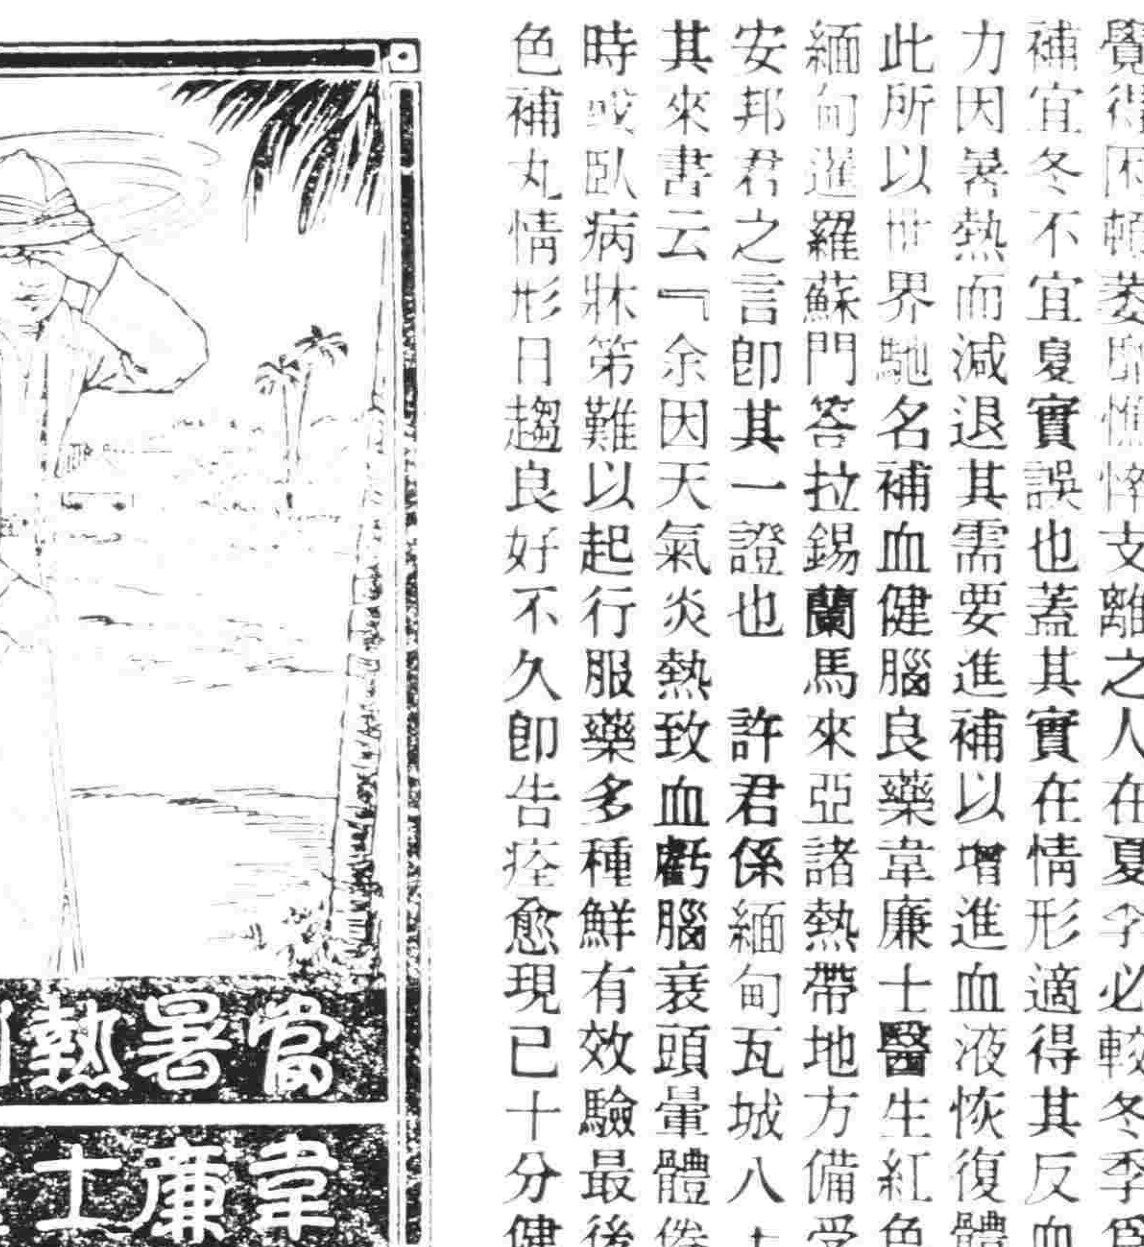 覺得困頓萎靡憔悴支離之人在夏季必較冬季爲
補宜冬不宜夏實誤也蓋其實在情形適得其反血
力因暑熱而減退其需要進補以增進血液恢復體
此所以世界馳名補血健腦良藥韋廉士醫生紅色
緬甸暹羅蘇門答拉錫蘭馬來亞諸熱帶地方備受
安邦君之言卽其一證也　許君係緬甸瓦城八十
其來書云『余因天氣炎熱致血虧腦衰頭暈體倦
時或臥病牀笫難以起行服藥多種鮮有效驗最後
色補丸情形日趨良好不久卽告痊愈現已十分健
當暑熱
韋廉士